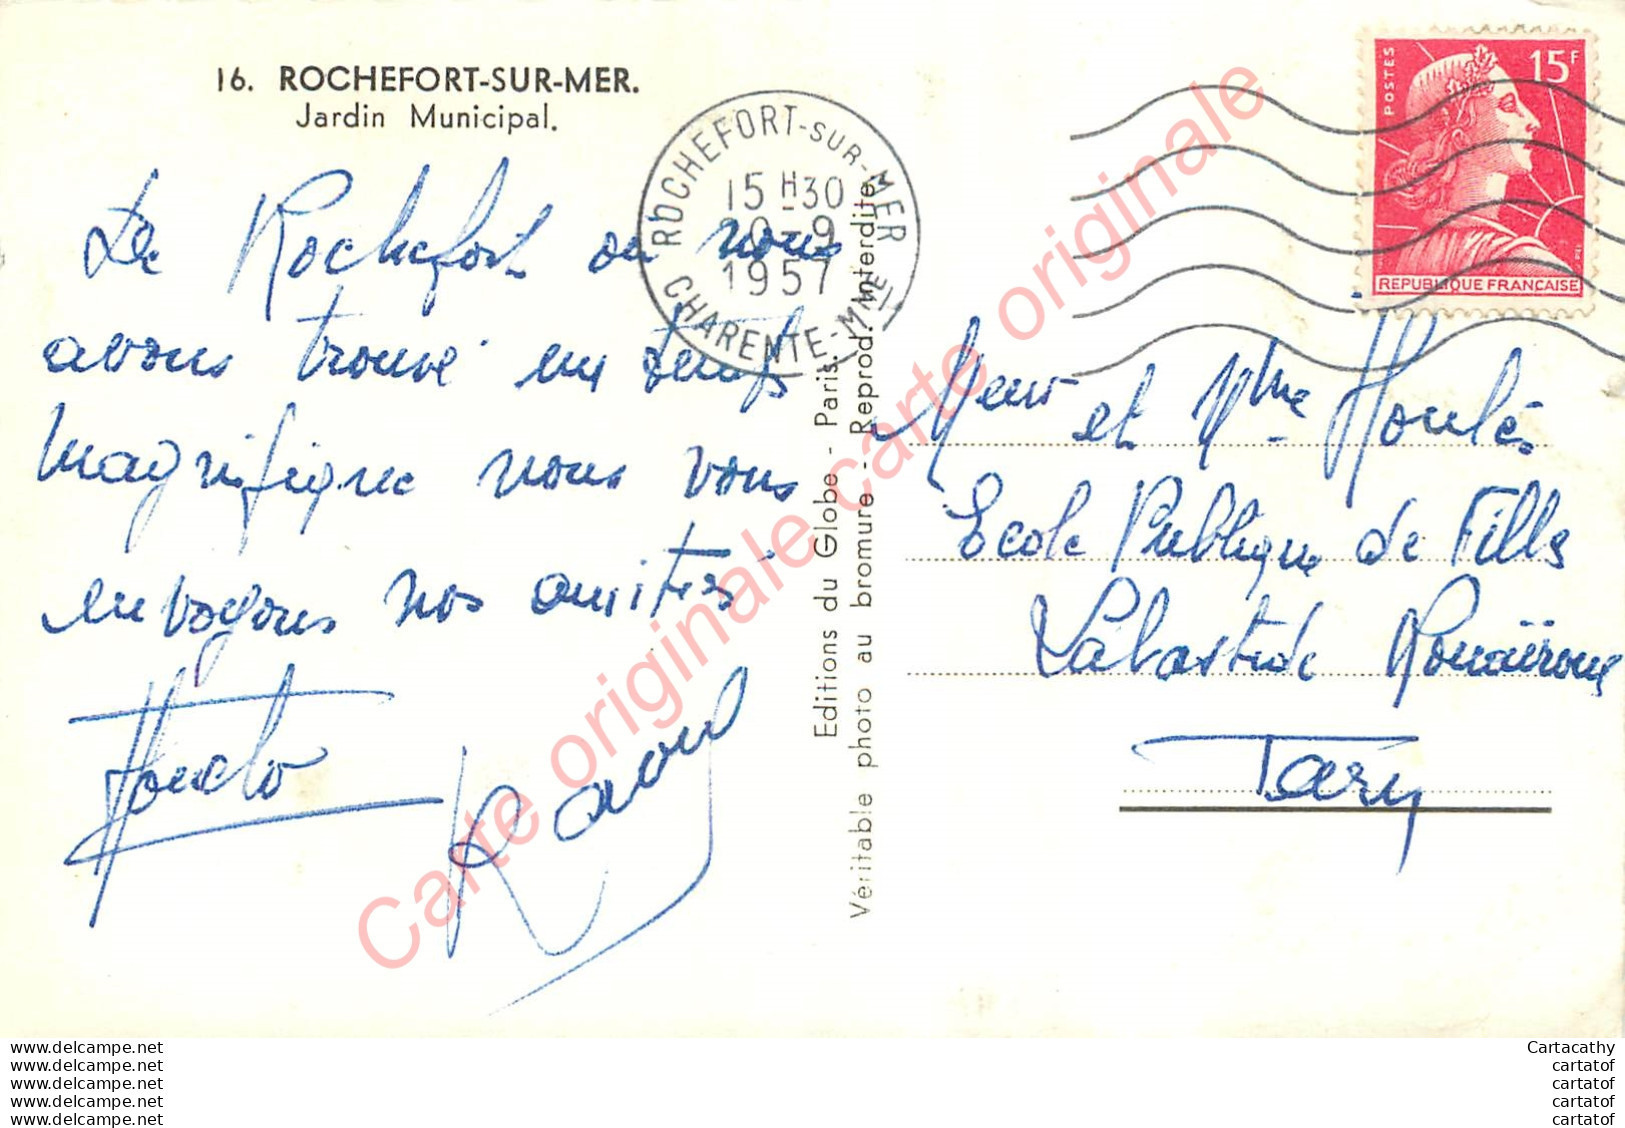 16. ROCHEFORT-SUR-MER.
Jardin Municipal.
De Rochefort ou nous
avons trouvé un temps
magnifique nous vous
envoyons nos amitiés
Raoul
ROCHEFORT-SUR-MER
15 H 30
20-9
1957
CHARENTE-MME
POSTES
15F
REPUBLIQUE FRANÇAISE
Editions du Globe - Paris.
Véritable photo au bromure - Reprod. Interdite
Meur et Mme Houlès
Ecole Publique de Filles
Labastide Rouairoux
Tarn
Carte originale carte originale
www.delcampe.net
www.delcampe.net
www.delcampe.net
www.delcampe.net
www.delcampe.net
Cartacathy
cartatof
cartatof
cartatof
cartatof